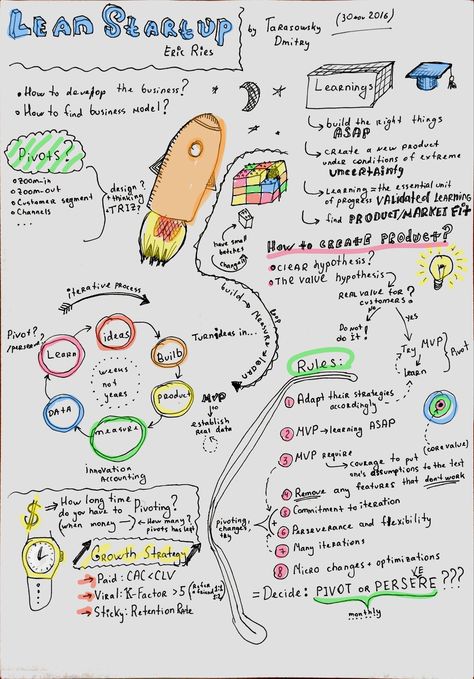 LEAN STARTUP
ERIC RIES
by TARASOWSKY
Dmitry
(30 nov 2016)
• How to develop the business?
• How to find business model?
Learnings
build the right things
ASAP
Create a new product
under conditions of extreme
UNCERTAINTY
Learning = the essential unit
of progress VALIDATED LEARNING
find PRODUCT/MARKET FIT
Pivots?
• Zoom-in
• Zoom-out
• Customer segment
• Channels
...
design?
thinking
TRIZ?
have small
batches
changes
How to CREATE PRODUCT?
• CLEAR hypothesis?
• The VALUE hypothesis
REAL VALUE for
customers?
no
yes
Do not
do it!
Try MVP
learn
Pivot
iterative process
build
measure
learn
loop
Pivot?
/persevere?
ideas
Build
product
measure
DATA
Learn
weeks
not
years
Turn ideas in...
MVP
establish
real data
Innovation
Accounting
Rules:
1 Adapt their strategies
accordingly
2 MVP → learning ASAP
3 MVP require
courage to put
one's assumptions to the test
(core value)
4 Remove any features that don't work
5 Commitment to iteration
6 Perseverance and flexibility
7 Many iterations
8 Micro changes + optimizations
= Decide: PIVOT or PERSERE ???
VE
monthly
pivoting,
changes,
try
$
How long time
do you have to Pivoting?
(when money
How many?
pivots has left
Growth Strategy
→ Paid: CAC < CLV
→ Viral: K-Factor > 5
→ Sticky: Retention Rate